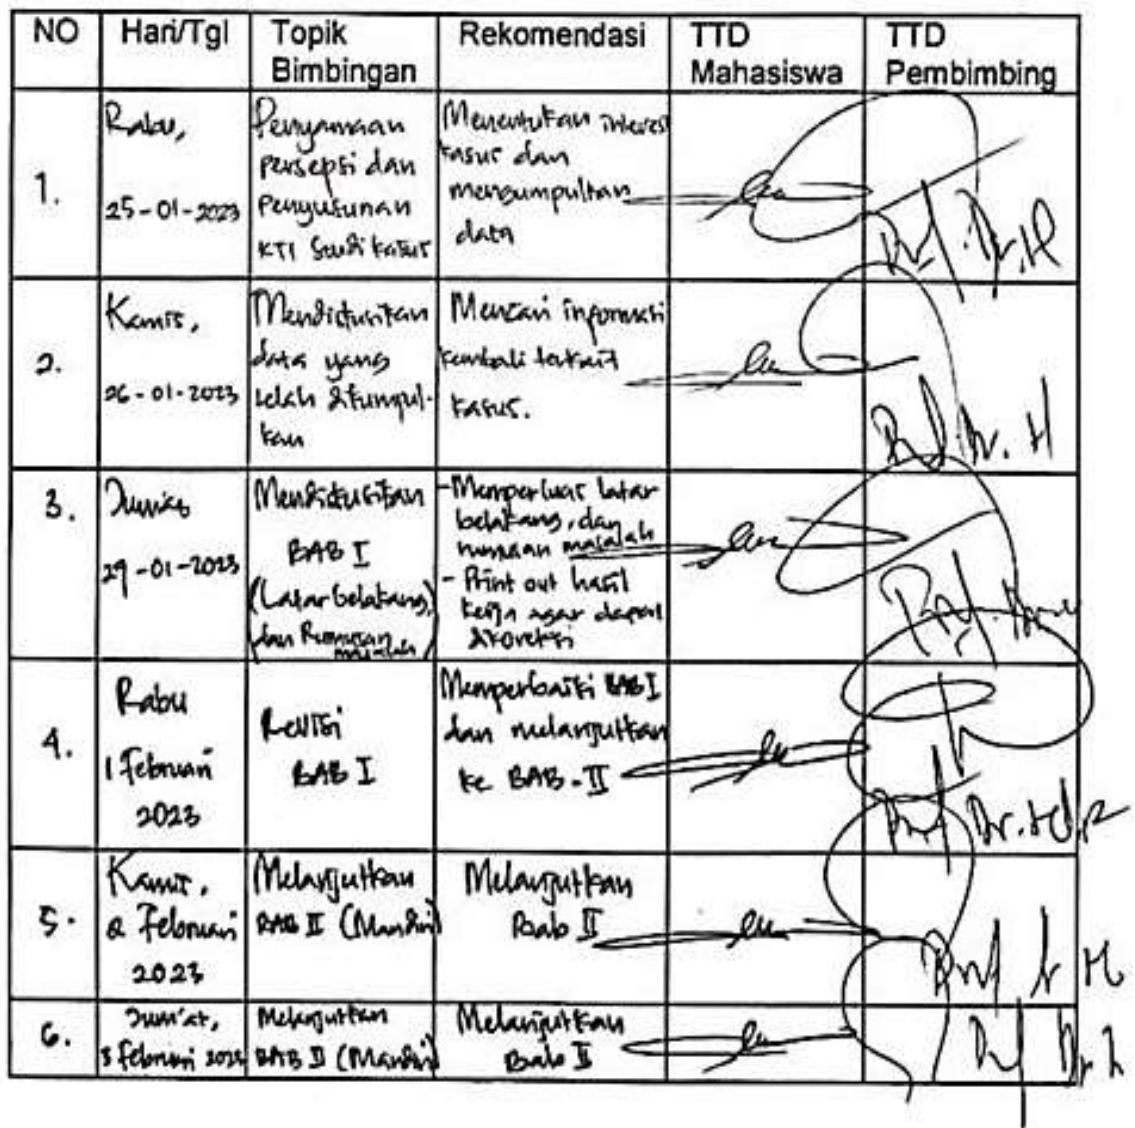 NO Hari/Tgl Topik Bimbingan Rekomendasi TTD Mahasiswa TTD Pembimbing
1.
Rabu,
25-01-2023
Penyamaan
persepsi dan
Penyusunan
KTI Studi kasus
Menentukan
kasus dan
mengumpulkan
data
2.
Kamis,
26-01-2023
Mendiskusikan
data yang
telah dikumpul-
kan
Mencari informasi
kembali terkait
kasus.
3.
Jum'at
29-01-2023
Mendiskusikan
BAB I
(Latar belakang,
dan Rumusan
masalah)
- Memperluas latar
belakang, dan
rumusan masalah
- Print out hasil
kerja agar dapat
dikoreksi
4.
Rabu
1 Februari
2023
Revisi
BAB I
Memperbaiki BAB I
dan melanjutkan
ke BAB-II
Prof Dr.
5.
Kamis,
2 Februari
2023
Melanjutkan
BAB II (Mandiri)
Melanjutkan
Bab II
6.
Jum'at,
3 Februari 2023
Melanjutkan
BAB II (Mandiri)
Melanjutkan
Bab II